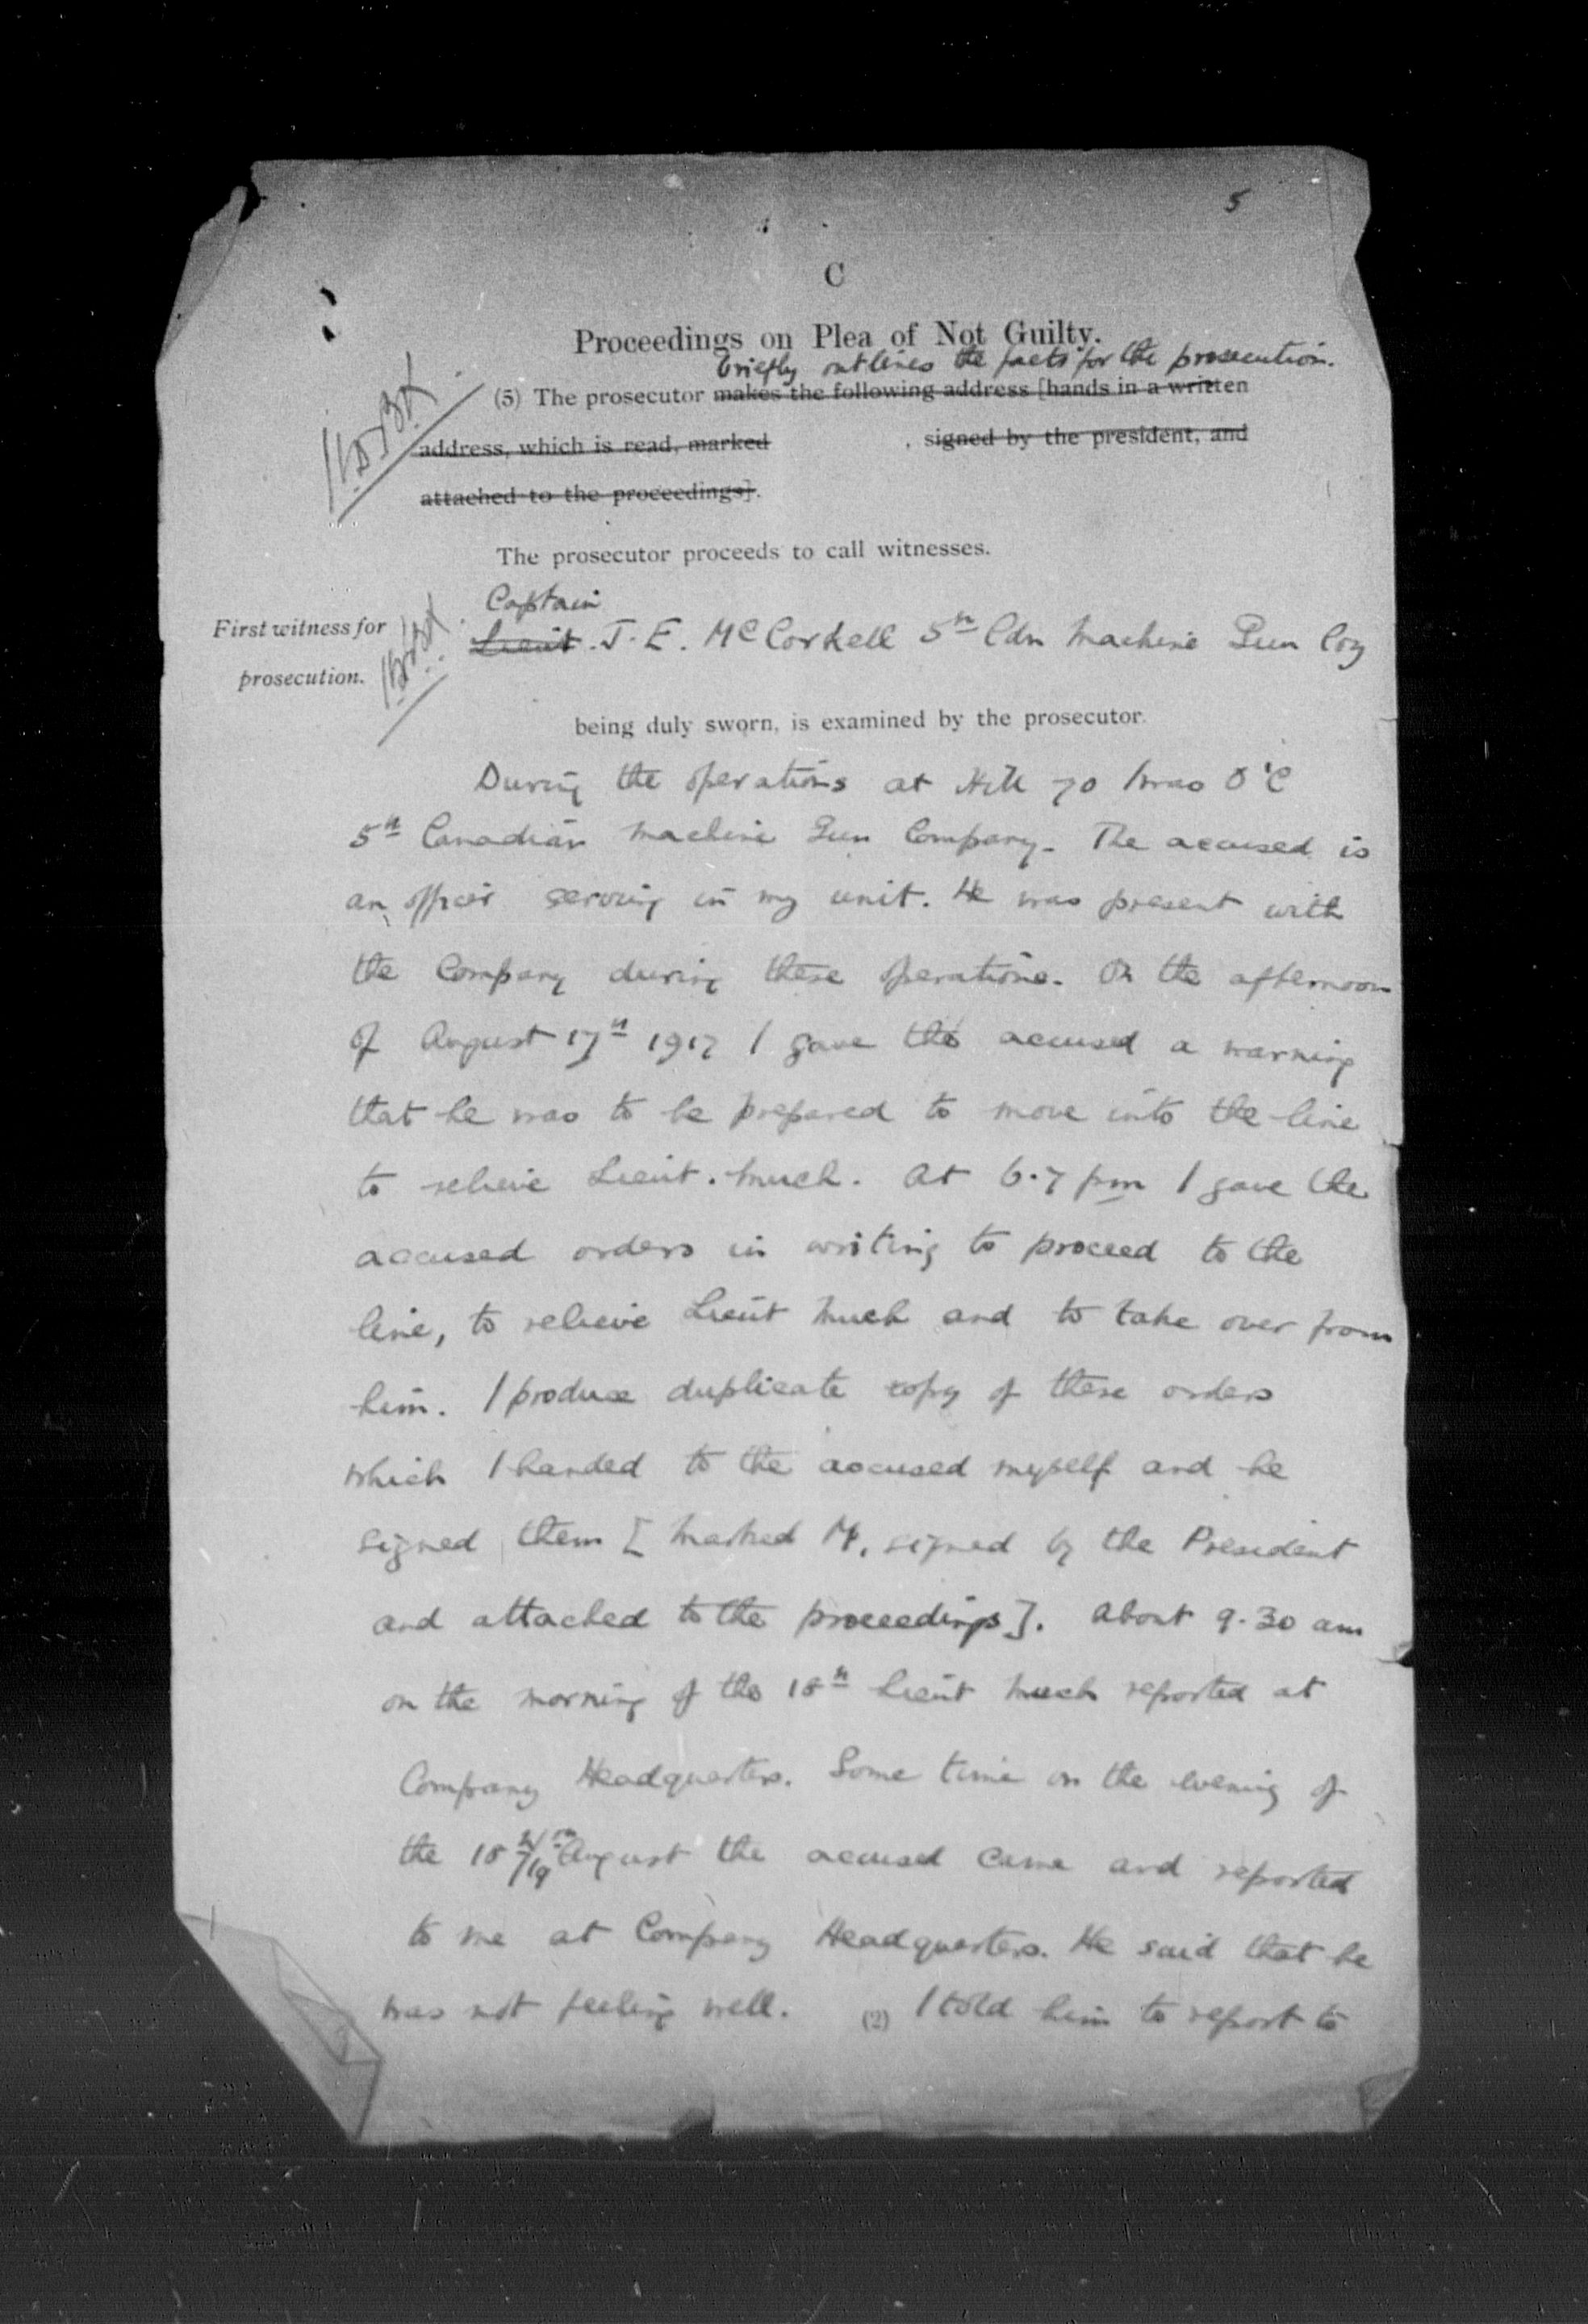 5
C
Proceedings on Plea of Not Guilty.
briefly outlines the facts for the prosecution.
(5) The prosecutor makes the following address [hands in a written
address, which is read, marked , signed by the president, and
attached to the proceedings].
The prosecutor proceeds to call witnesses.
Captain
First witness for
prosecution.
Lieut. J. E. McCorkell 5th Cdn Machine Gun Coy
being duly sworn, is examined by the prosecutor.
During the operations at Hill 70 I was O'C
5th Canadian Machine Gun Company. The accused is
an officer serving in my unit. He was present with
the Company during these operations. On the afternoon
of August 17th 1917 I gave the accused a warning
that he was to be prepared to move into the line
to relieve Lieut. Much. At 6.7 pm I gave the
accused orders in writing to proceed to the
line, to relieve Lieut Much and to take over from
him. I produce duplicate copy of these orders
which I handed to the accused myself and he
signed them [Marked M, signed by the President
and attached to the proceedings]. About 9.30 am
on the morning of the 18th Lieut Much reported at
Company Headquarters. Some time on the evening of
the 18th/19th August the accused came and reported
to me at Company Headquarters. He said that he
was not feeling well. (2) I told him to report to